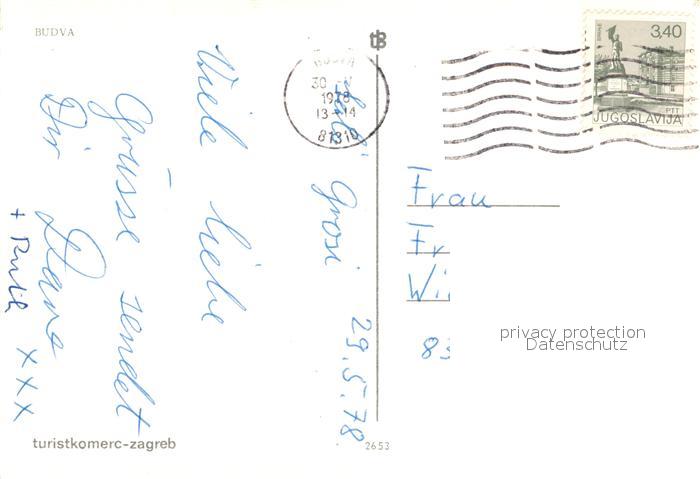 BUDVA
tB
3,40
PTT
JUGOSLAVIJA
30
1978
13-14
81310
29.5.78
Grosi
Viele liebe
Grüsse sendet
Dir Hans
+ Ruth xxx
Frau
Fr
Wi
83
privacy protection
Datenschutz
turistkomerc-zagreb
2653